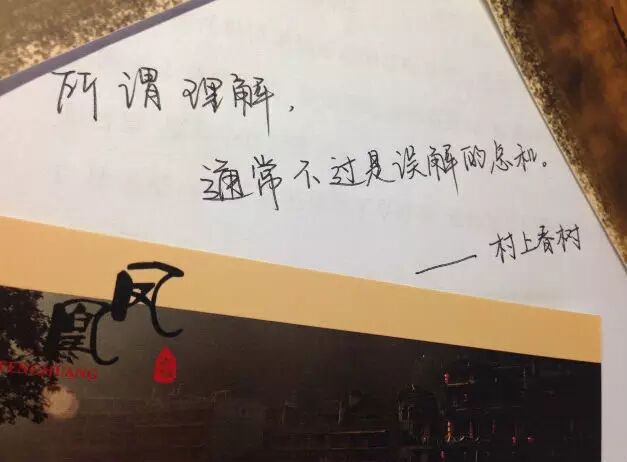 所谓理解，
通常不过是误解的总和。
——村上春树
凤凰
FENGHUANG